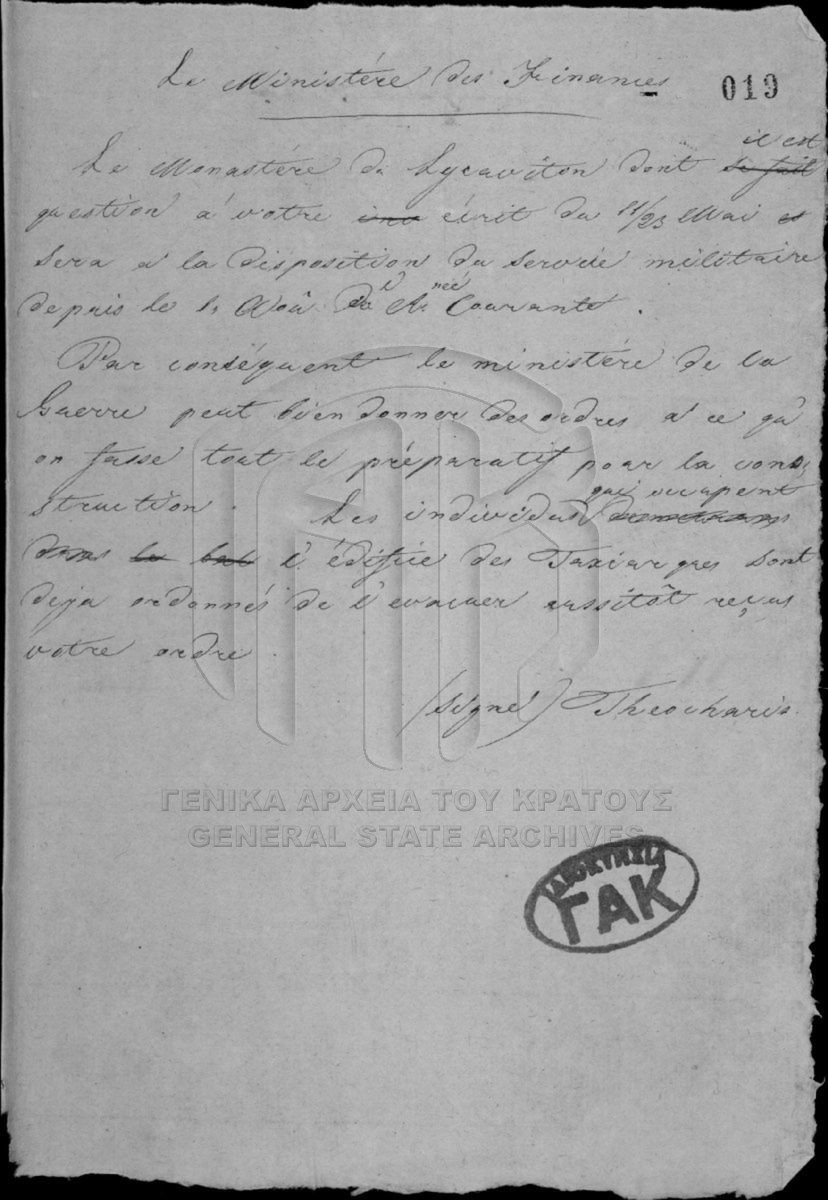 Le Ministére des Finances
019
Le Monastére du Lycaviton dont se fait il est
question à votre écrit du 11/23 Mai
sera à la disposition du service militaire
depuis le 1. Aoû de l' An née Courante.
Par conséquent le ministére de la
Guerre peut bien donner des ordres à ce qu'
on fasse tout le préparatif pour la con-
struction. Les individus qui occupent
dans la l'édifice des Taxiarques sont
deja ordonnés de l'evacuer aussitôt reçus
votre ordre.
(signé) Theocharis
ΓΕΝΙΚΑ ΑΡΧΕΙΑ ΤΟΥ ΚΡΑΤΟΥΣ
GENERAL STATE ARCHIVES
ΙΔΙΟΚΤΗΣΙΑ
ΓΑΚ